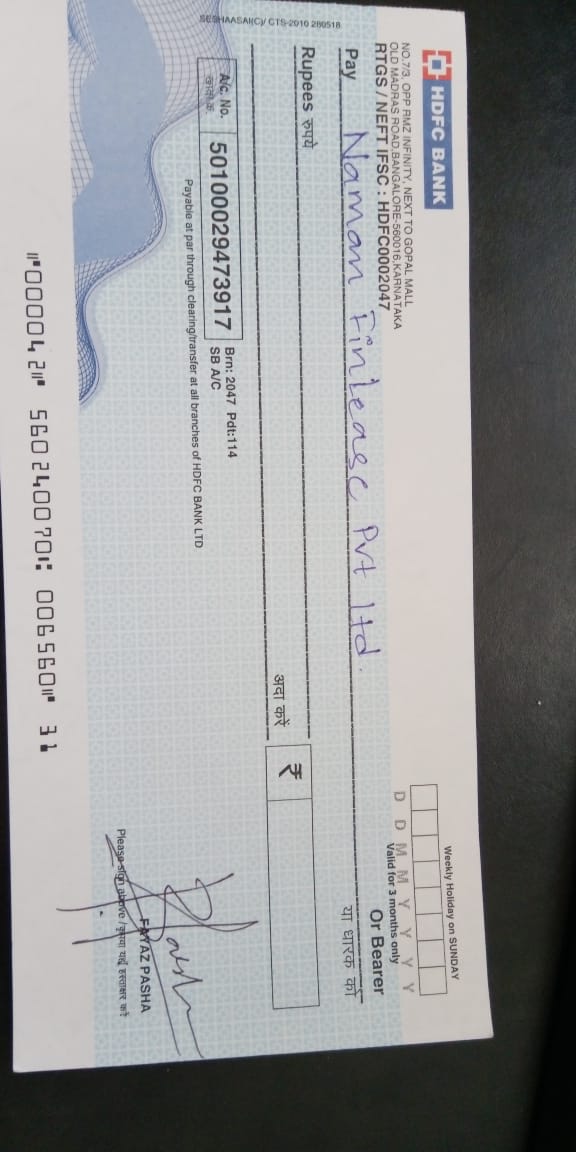 HDFC BANK
NO.7/3, OPP RMZ INFINITY, NEXT TO GOPAL MALL
OLD MADRAS ROAD,BANGALORE-560016,KARNATAKA
RTGS / NEFT IFSC : HDFC0002047
Weekly Holiday on SUNDAY
D D M M Y Y Y Y
Valid for 3 months only
Pay Naman Finlease Pvt ltd. Or Bearer
या धारक को
Rupees रुपये
अदा करें ₹
A/c. No. 50100029473917 Brn: 2047 Pdt:114
खाता क्र. SB A/C
Payable at par through clearing/transfer at all branches of HDFC BANK LTD
SESHAASAI(C)/ CTS-2010 280518
Pasha
FAYAZ PASHA
Please sign above / कृपया यहाँ हस्ताक्षर करें
⑈000042⑈ 560240070⑆ 006560⑈ 31